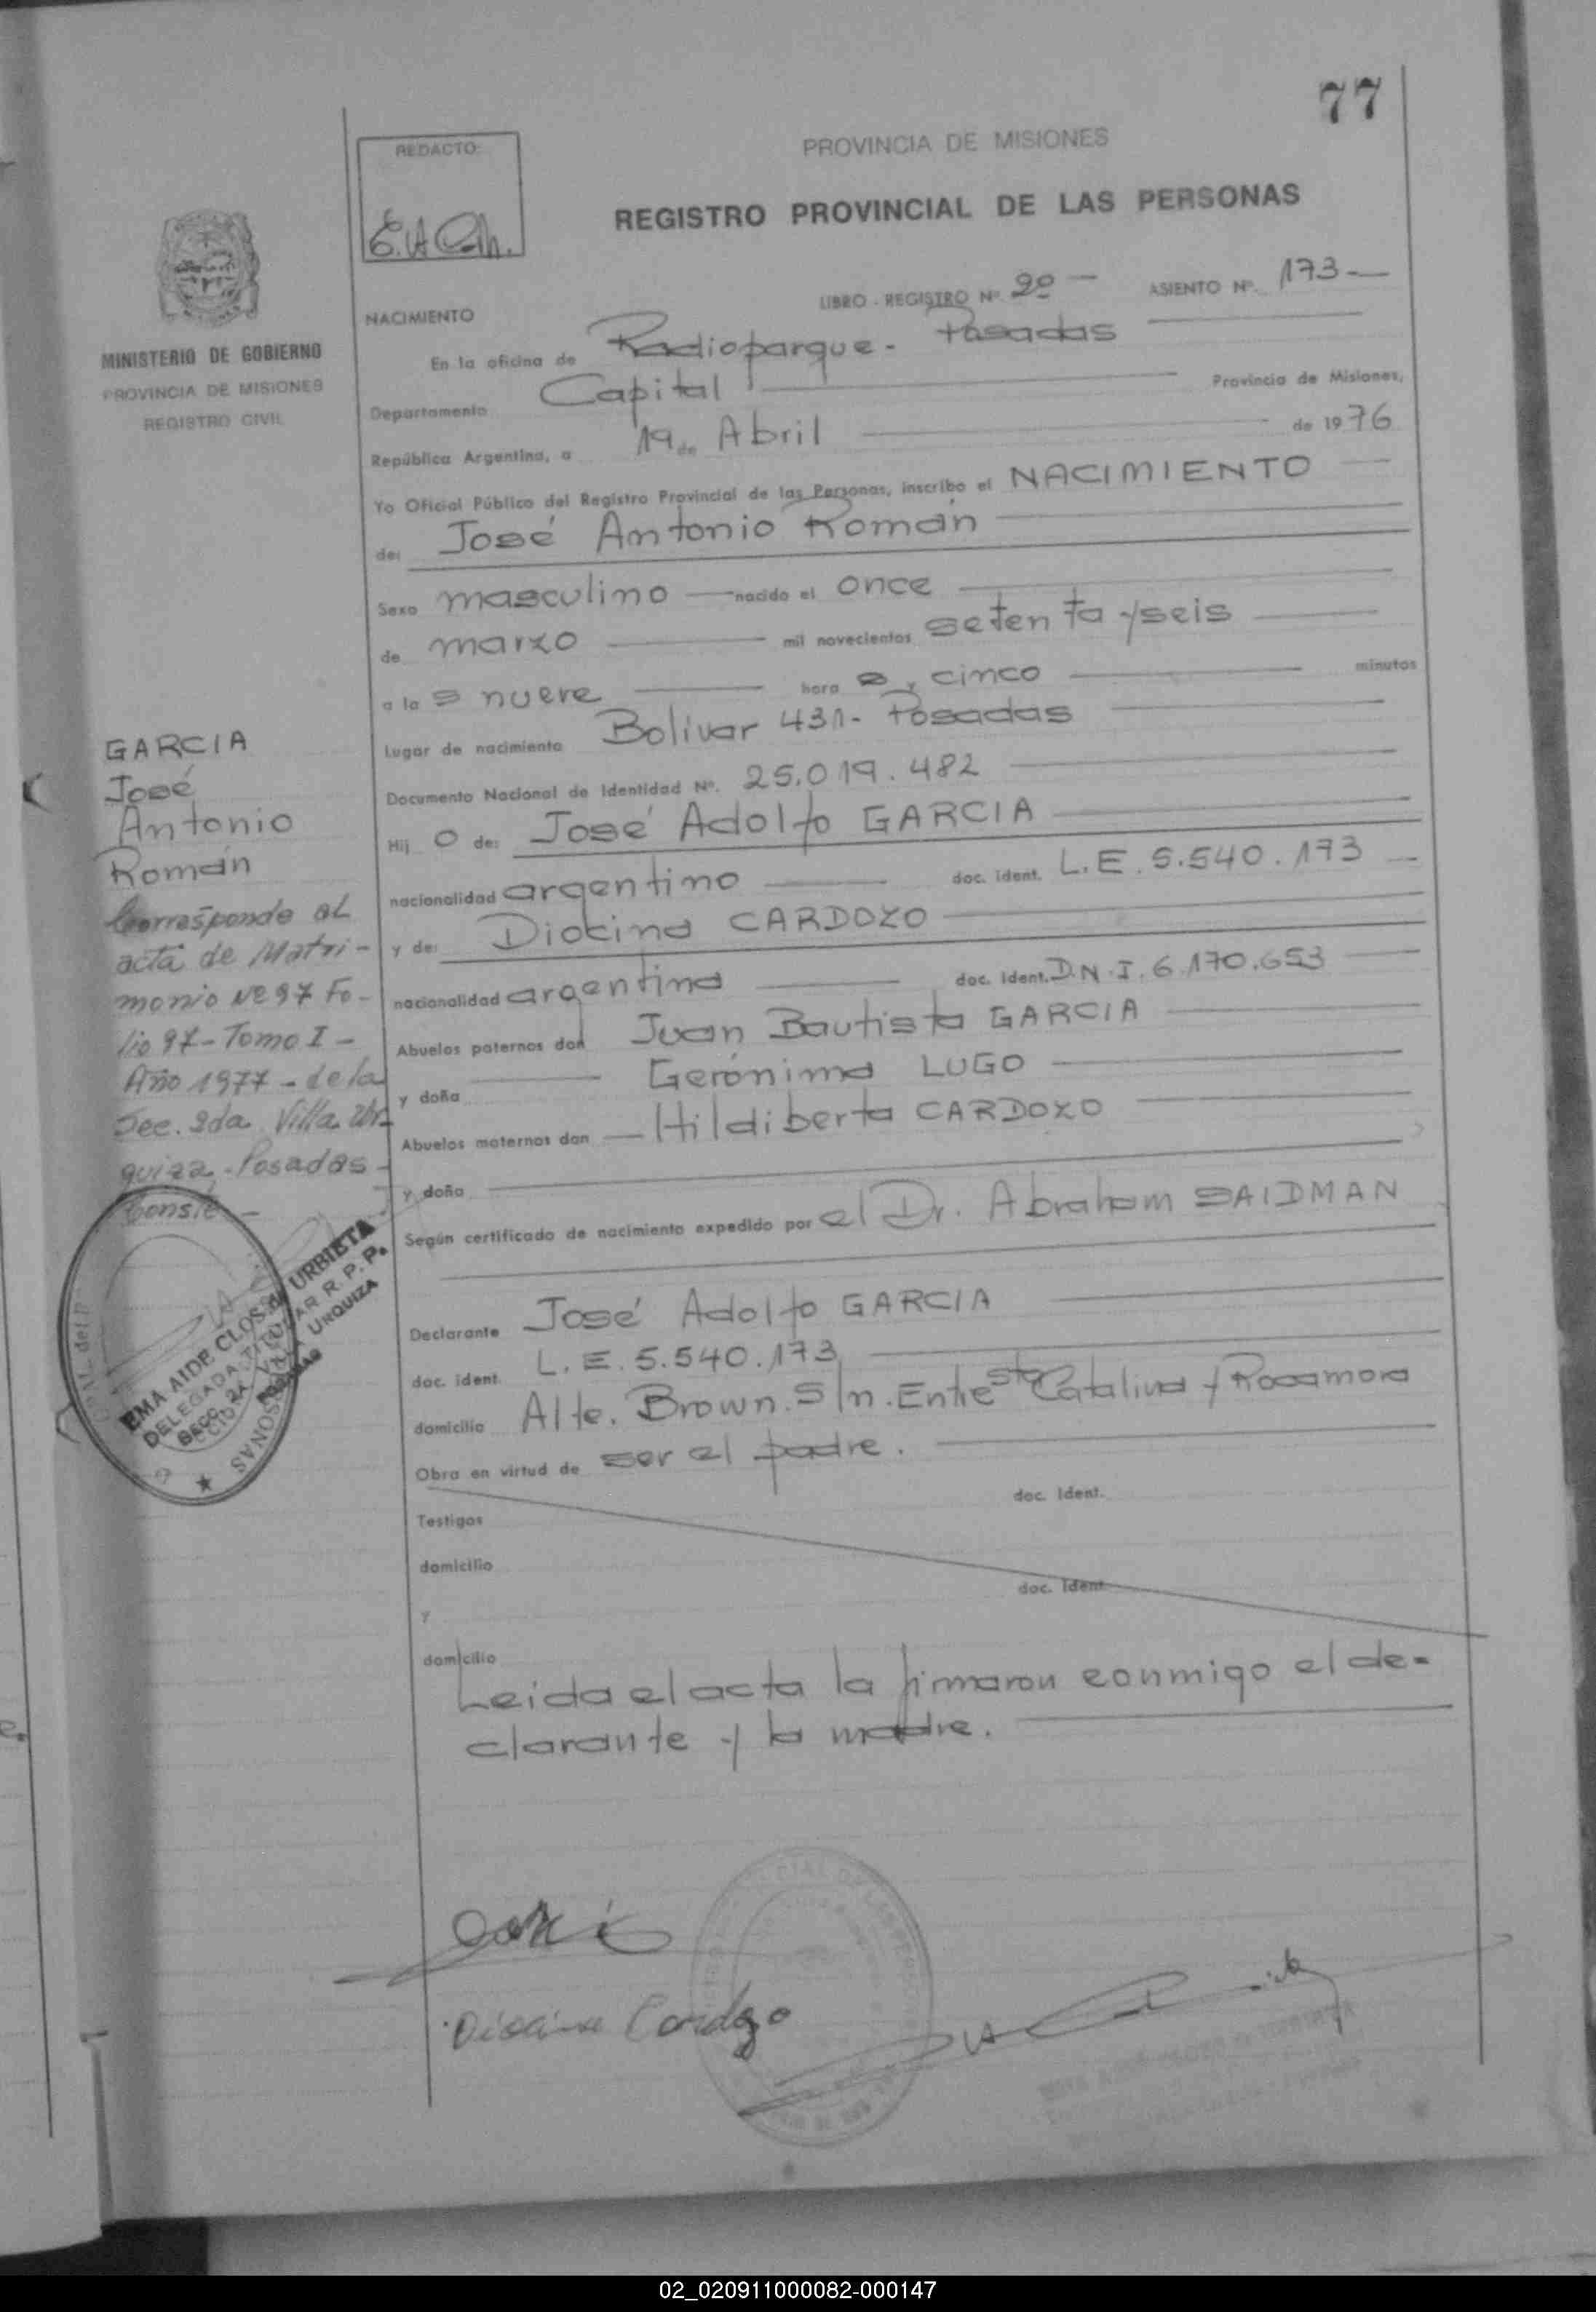 77
REDACTO:
PROVINCIA DE MISIONES
REGISTRO PROVINCIAL DE LAS PERSONAS
LIBRO - REGISTRO Nº 2º — ASIENTO Nº 173 —
NACIMIENTO
En la oficina de Radioparque - Posadas
Departamento Capital Provincia de Misiones,
República Argentina, a 19 de Abril de 1976
Yo Oficial Público del Registro Provincial de las Personas, inscribo el NACIMIENTO
de: José Antonio Román
Sexo masculino — nacido el once
de marzo mil novecientos setenta y seis
a las nueve hora s y cinco minutos
Lugar de nacimiento Bolivar 431 - Posadas
Documento Nacional de Identidad Nº. 25.019.482
Hij o de: José Adolfo GARCIA
nacionalidad argentino doc. ident. L.E. 5.540.173
y de: CARDOZO
nacionalidad argentina doc. ident. D.N.I. 6.170.653
Abuelos paternos don Juan Bautista GARCIA
y doña Gerónima LUGO
Abuelos maternos don — Hildiberta CARDOZO
y doña
Según certificado de nacimiento expedido por el Dr. Abraham SAIDMAN
Declarante José Adolfo GARCIA
doc. ident. L.E. 5.540.173
domicilio Alte. Brown. S/n. Entre Sta Catalina y Rocamora
Obra en virtud de ser el padre.
doc. ident.
Testigos
domicilio
doc. ident.
y
domicilio
Leida el acta la firmaron conmigo el de-
clarante y la madre.
Cardozo
MINISTERIO DE GOBIERNO
PROVINCIA DE MISIONES
REGISTRO CIVIL
GARCIA
José
Antonio
Román
Corresponde al
acta de Matri-
monio Nº 97 Fo-
lio 97 - Tomo I -
Año 1977 - de la
Sec. 2da. Villa Ur-
quiza - Posadas -
Conste -
EMA AIDE CLOS de URBIETA
DELEGADA TITULAR R. P. P.
SECC. 2A. VILLA URQUIZA
POSADAS
02_020911000082-000147